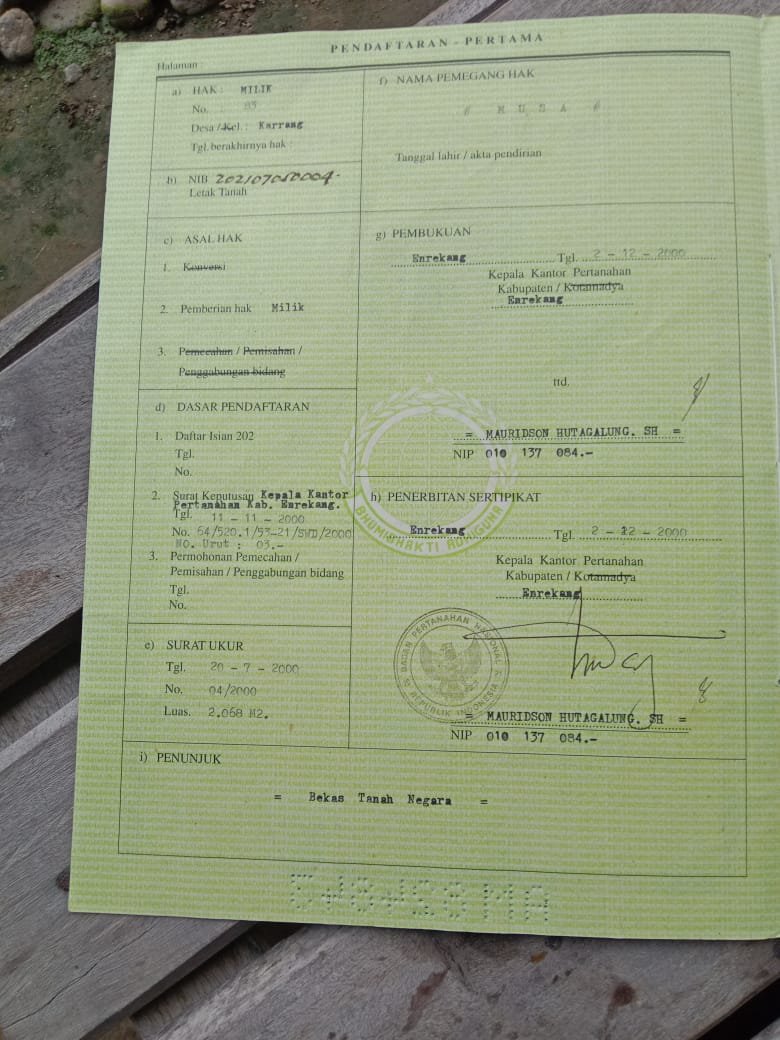 PENDAFTARAN - PERTAMA
Halaman :
a) HAK : MILIK
No. : 83
Desa / Kel. : Karrang
Tgl. berakhirnya hak :
b) NIB 202107050004.
Letak Tanah
c) ASAL HAK
1. Konversi
2. Pemberian hak Milik
3. Pemecahan / Pemisahan /
Penggabungan bidang
d) DASAR PENDAFTARAN
1. Daftar Isian 202
Tgl.
No.
2. Surat Keputusan Kepala Kantor
Pertanahan Kab. Enrekang.
Tgl. 11 - 11 - 2000
No. 64/520.1/53-21/SYD/2000
NO. Urut : 03.-
3. Permohonan Pemecahan /
Pemisahan / Penggabungan bidang
Tgl.
No.
e) SURAT UKUR
Tgl. 20 - 7 - 2000
No. 04/2000
Luas. 2.068 M2.
f) NAMA PEMEGANG HAK
# M U S A #
Tanggal lahir / akta pendirian
g) PEMBUKUAN
Enrekang Tgl. 2 - 12 - 2000
Kepala Kantor Pertanahan
Kabupaten / Kotamadya
Enrekang
ttd.
= MAURIDSON HUTAGALUNG. SH =
NIP 010 137 084.-
h) PENERBITAN SERTIPIKAT
Enrekang Tgl. 2 - 12 - 2000
Kepala Kantor Pertanahan
Kabupaten / Kotamadya
Enrekang
BADAN PERTANAHAN NASIONAL
REPUBLIK INDONESIA
= MAURIDSON HUTAGALUNG. SH =
NIP 010 137 084.-
i) PENUNJUK
= Bekas Tanah Negara =
BHUMI BHAKTI ADHIGUNA